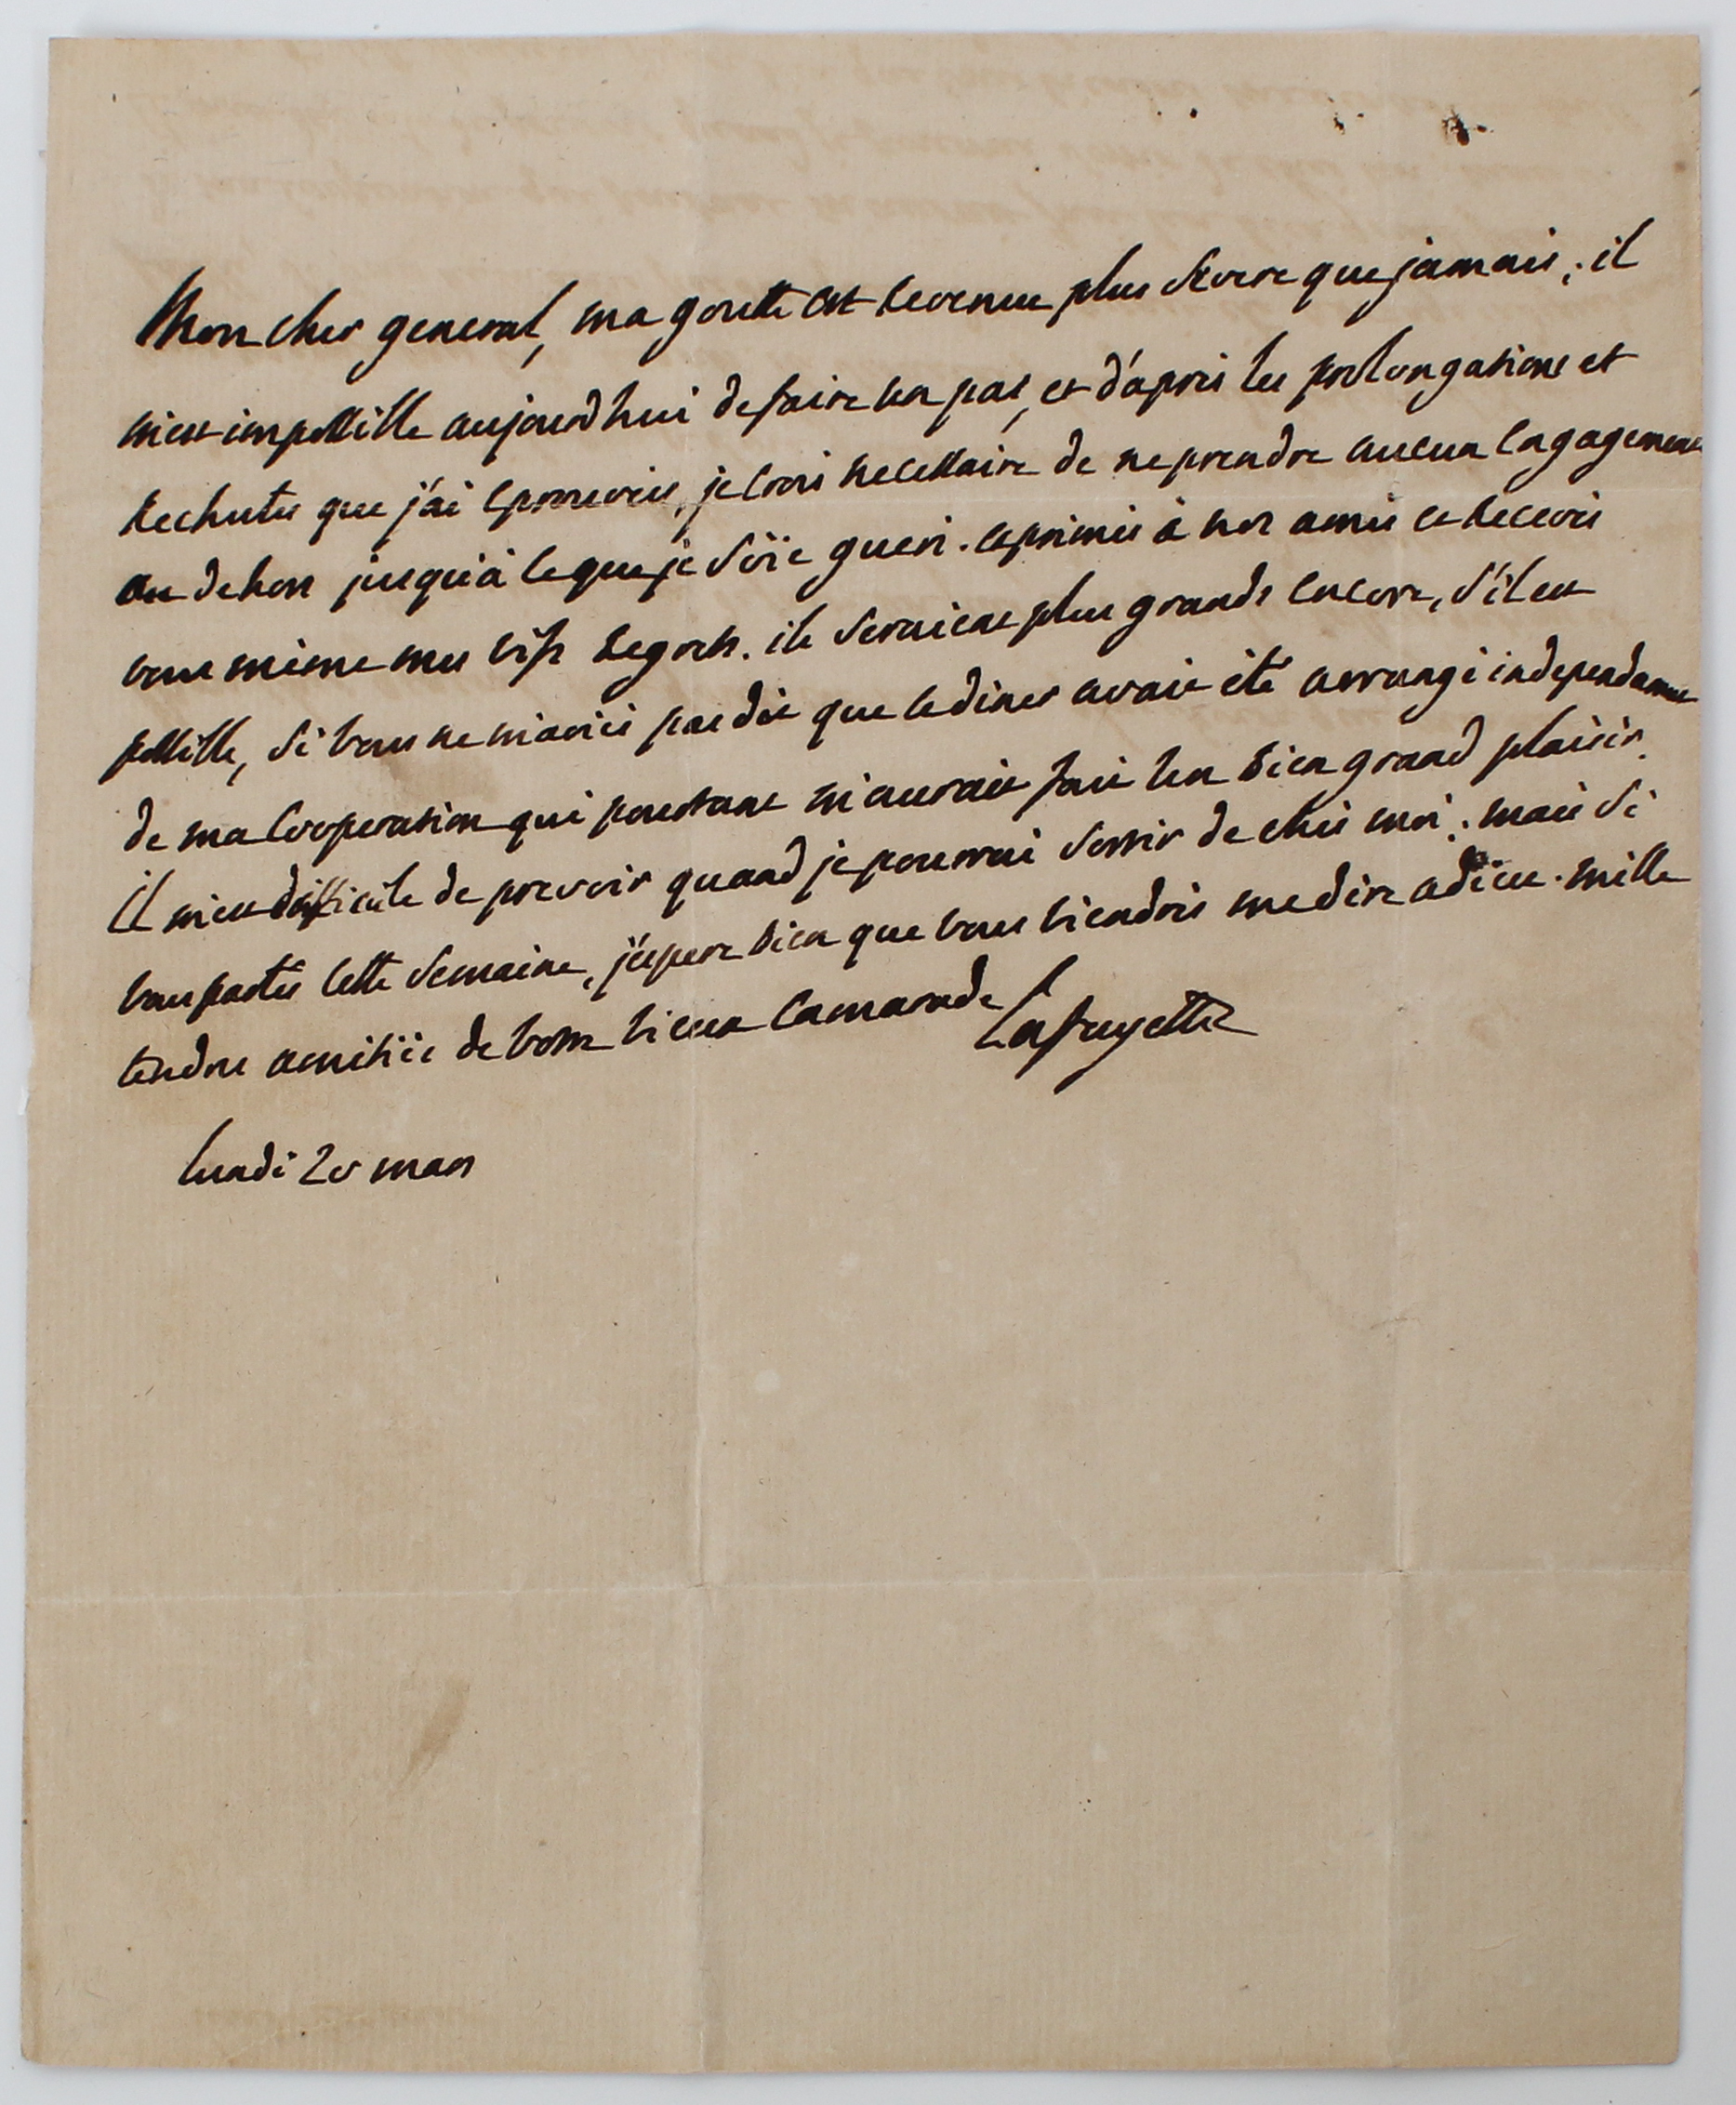 Mon cher general, ma goutte est revenue plus severe que jamais; il
m'est impossible aujourd'hui de faire un pas, et d'après les prolongations et
rechutes que j'ai eprouvées, je crois necessaire de ne prendre aucun engagement
au dehors jusqu'à ce que je soïe gueri. exprimés à nos amis et recevés
vous même mes vifs regrets. ils seraient plus grands encore, s'il est
possible, si vous ne m'aviés pas dit que le diner avait été arrangé independament
de ma cooperation qui pourtant m'aurait fait un bien grand plaisir.
Il m'est difficile de prevoir quand je pourrai sortir de chés moi; mais si
vous partés cette semaine, j'espere bien que vous viendrés me dire adieu. mille
tendres amitiés de votre vieux camarade Lafayette
lundi 20 mars